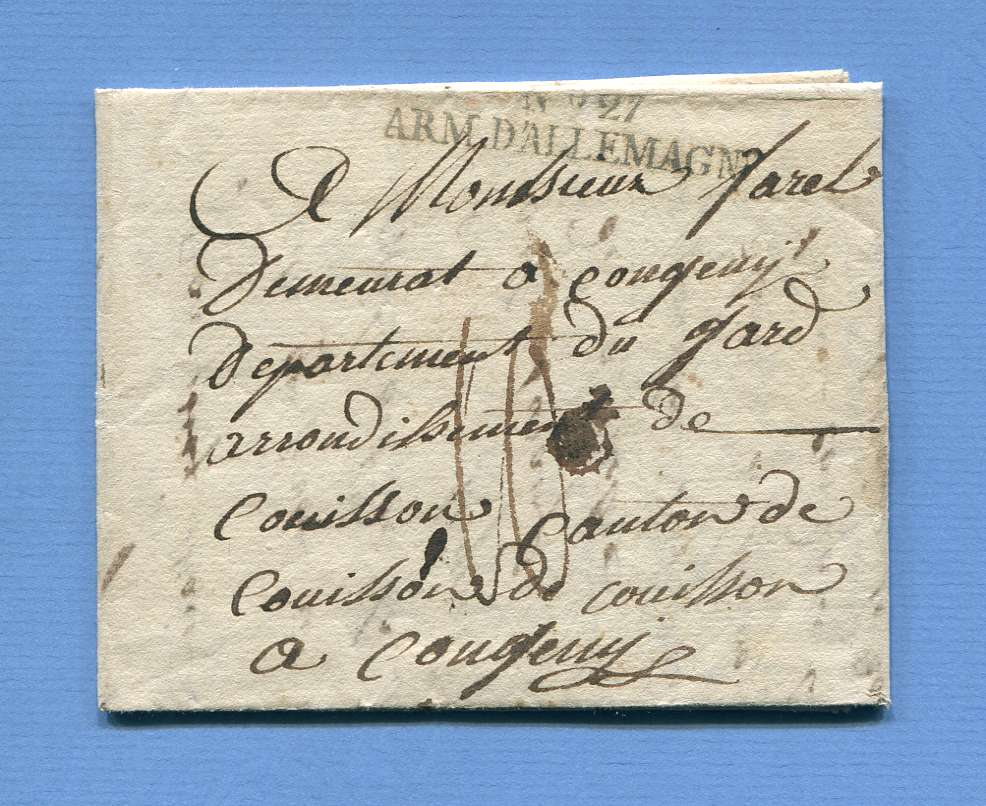 N° 27
ARM. D'ALLEMAGNE
A Monsieur farel
Demeurat a congenij
Departement du gard
arrondissement de
Couisson canton de
Couisson de couisson
a Congenij